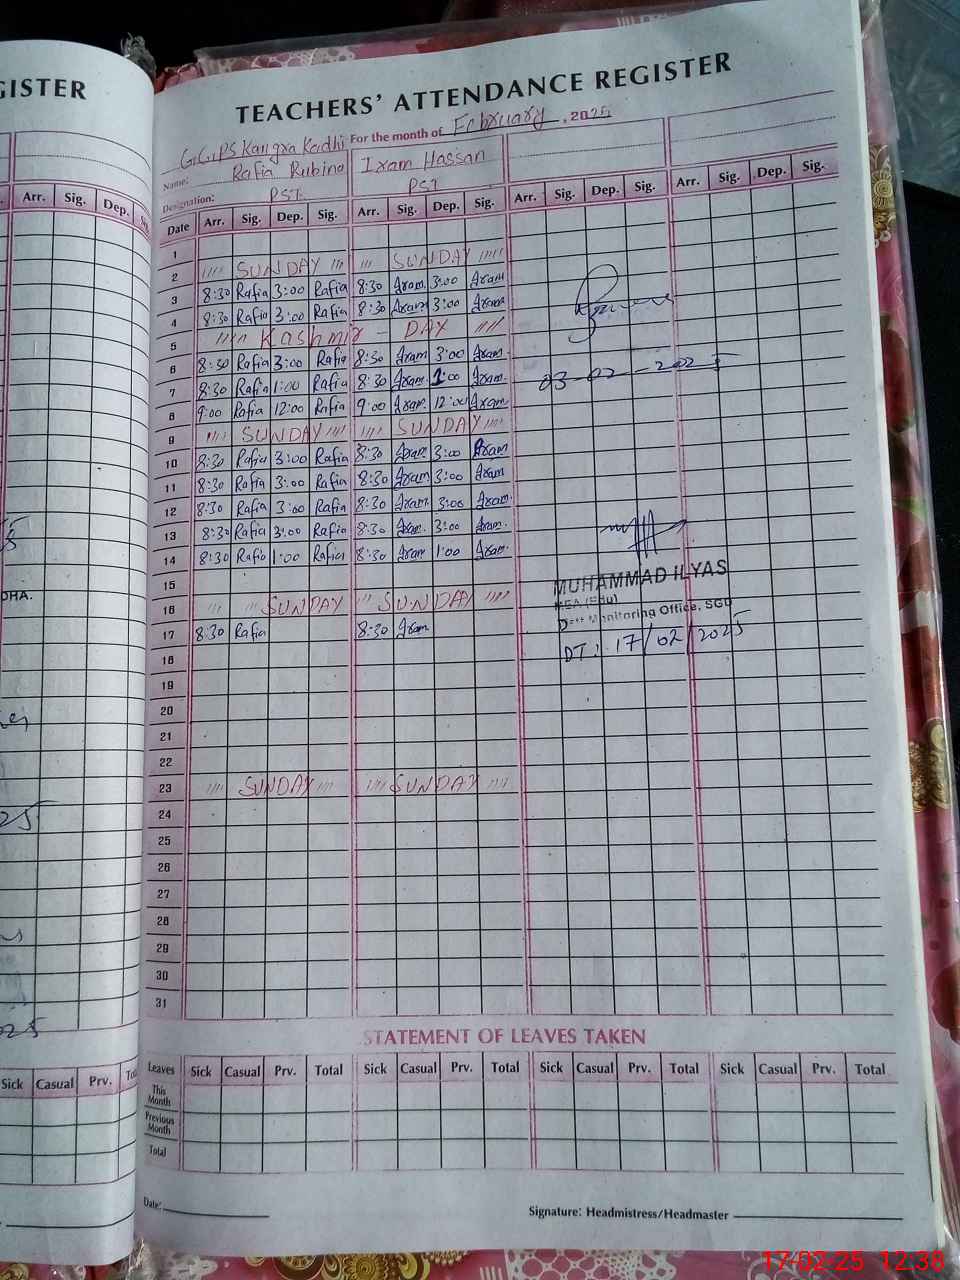 GISTER
Arr. Sig. Dep. Sig.
DHA.
25
025
Sick Casual Prv.
TEACHERS' ATTENDANCE REGISTER
G.G.PS Kangra Kadhi For the month of February, 2025
Name: Rafia Rubina Iram Hassan
Designation: PST PST
Date Arr. Sig. Dep. Sig. Arr. Sig. Dep. Sig. Arr. Sig. Dep. Sig. Arr. Sig. Dep. Sig.
1
2 SUNDAY SUNDAY
3 8:30 Rafia 3:00 Rafia 8:30 Iram 3:00 Iram
4 8:30 Rafia 3:00 Rafia 8:30 Iram 3:00 Iram
5 Kashmir - DAY
6 8:30 Rafia 3:00 Rafia 8:30 Iram 3:00 Iram
7 8:30 Rafia 1:00 Rafia 8:30 Iram 1:00 Iram
03-02-2025
8 9:00 Rafia 12:00 Rafia 9:00 Iram 12:00 Iram
9 SUNDAY SUNDAY
10 8:30 Rafia 3:00 Rafia 8:30 Iram 3:00 Iram
11 8:30 Rafia 3:00 Rafia 8:30 Iram 3:00 Iram
12 8:30 Rafia 3:00 Rafia 8:30 Iram 3:00 Iram
13 8:30 Rafia 3:00 Rafia 8:30 Iram 3:00 Iram
14 8:30 Rafia 1:00 Rafia 8:30 Iram 1:00 Iram
15
MUHAMMAD ILYAS
MEA (Edu)
16 SUNDAY SUNDAY
Distt Monitoring Office, SGD
17 8:30 Rafia 8:30 Iram
DT: 17/02/2025
18
19
20
21
22
23 SUNDAY SUNDAY
24
25
26
27
28
29
30
31
STATEMENT OF LEAVES TAKEN
Leaves Sick Casual Prv. Total Sick Casual Prv. Total Sick Casual Prv. Total Sick Casual Prv. Total
This Month
Previous Month
Total
Date:
Signature: Headmistress/Headmaster
17-02-25 12:38